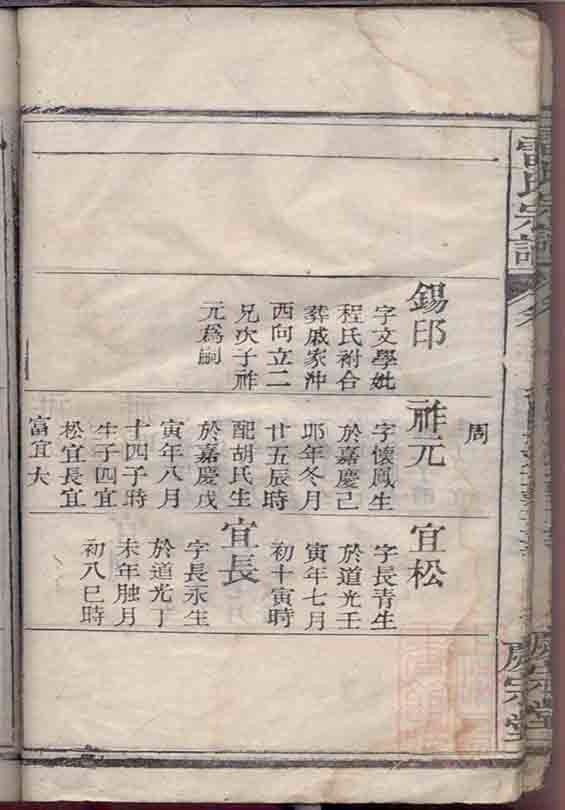 雷氏宗譜
錫印
字文學妣
程氏祔合
葬戚家冲
西向立二
兄次子祚
元爲嗣
周
祚元
字懷鳳生
於嘉慶己
卯年冬月
廿五辰時
配胡氏生
於嘉慶戊
寅年八月
十四子時
生子四宜
松宜長宜
富宜大
宜松
字長青生
於道光壬
寅年七月
初十寅時
宜長
字長永生
於道光丁
未年臘月
初八巳時
宗堂